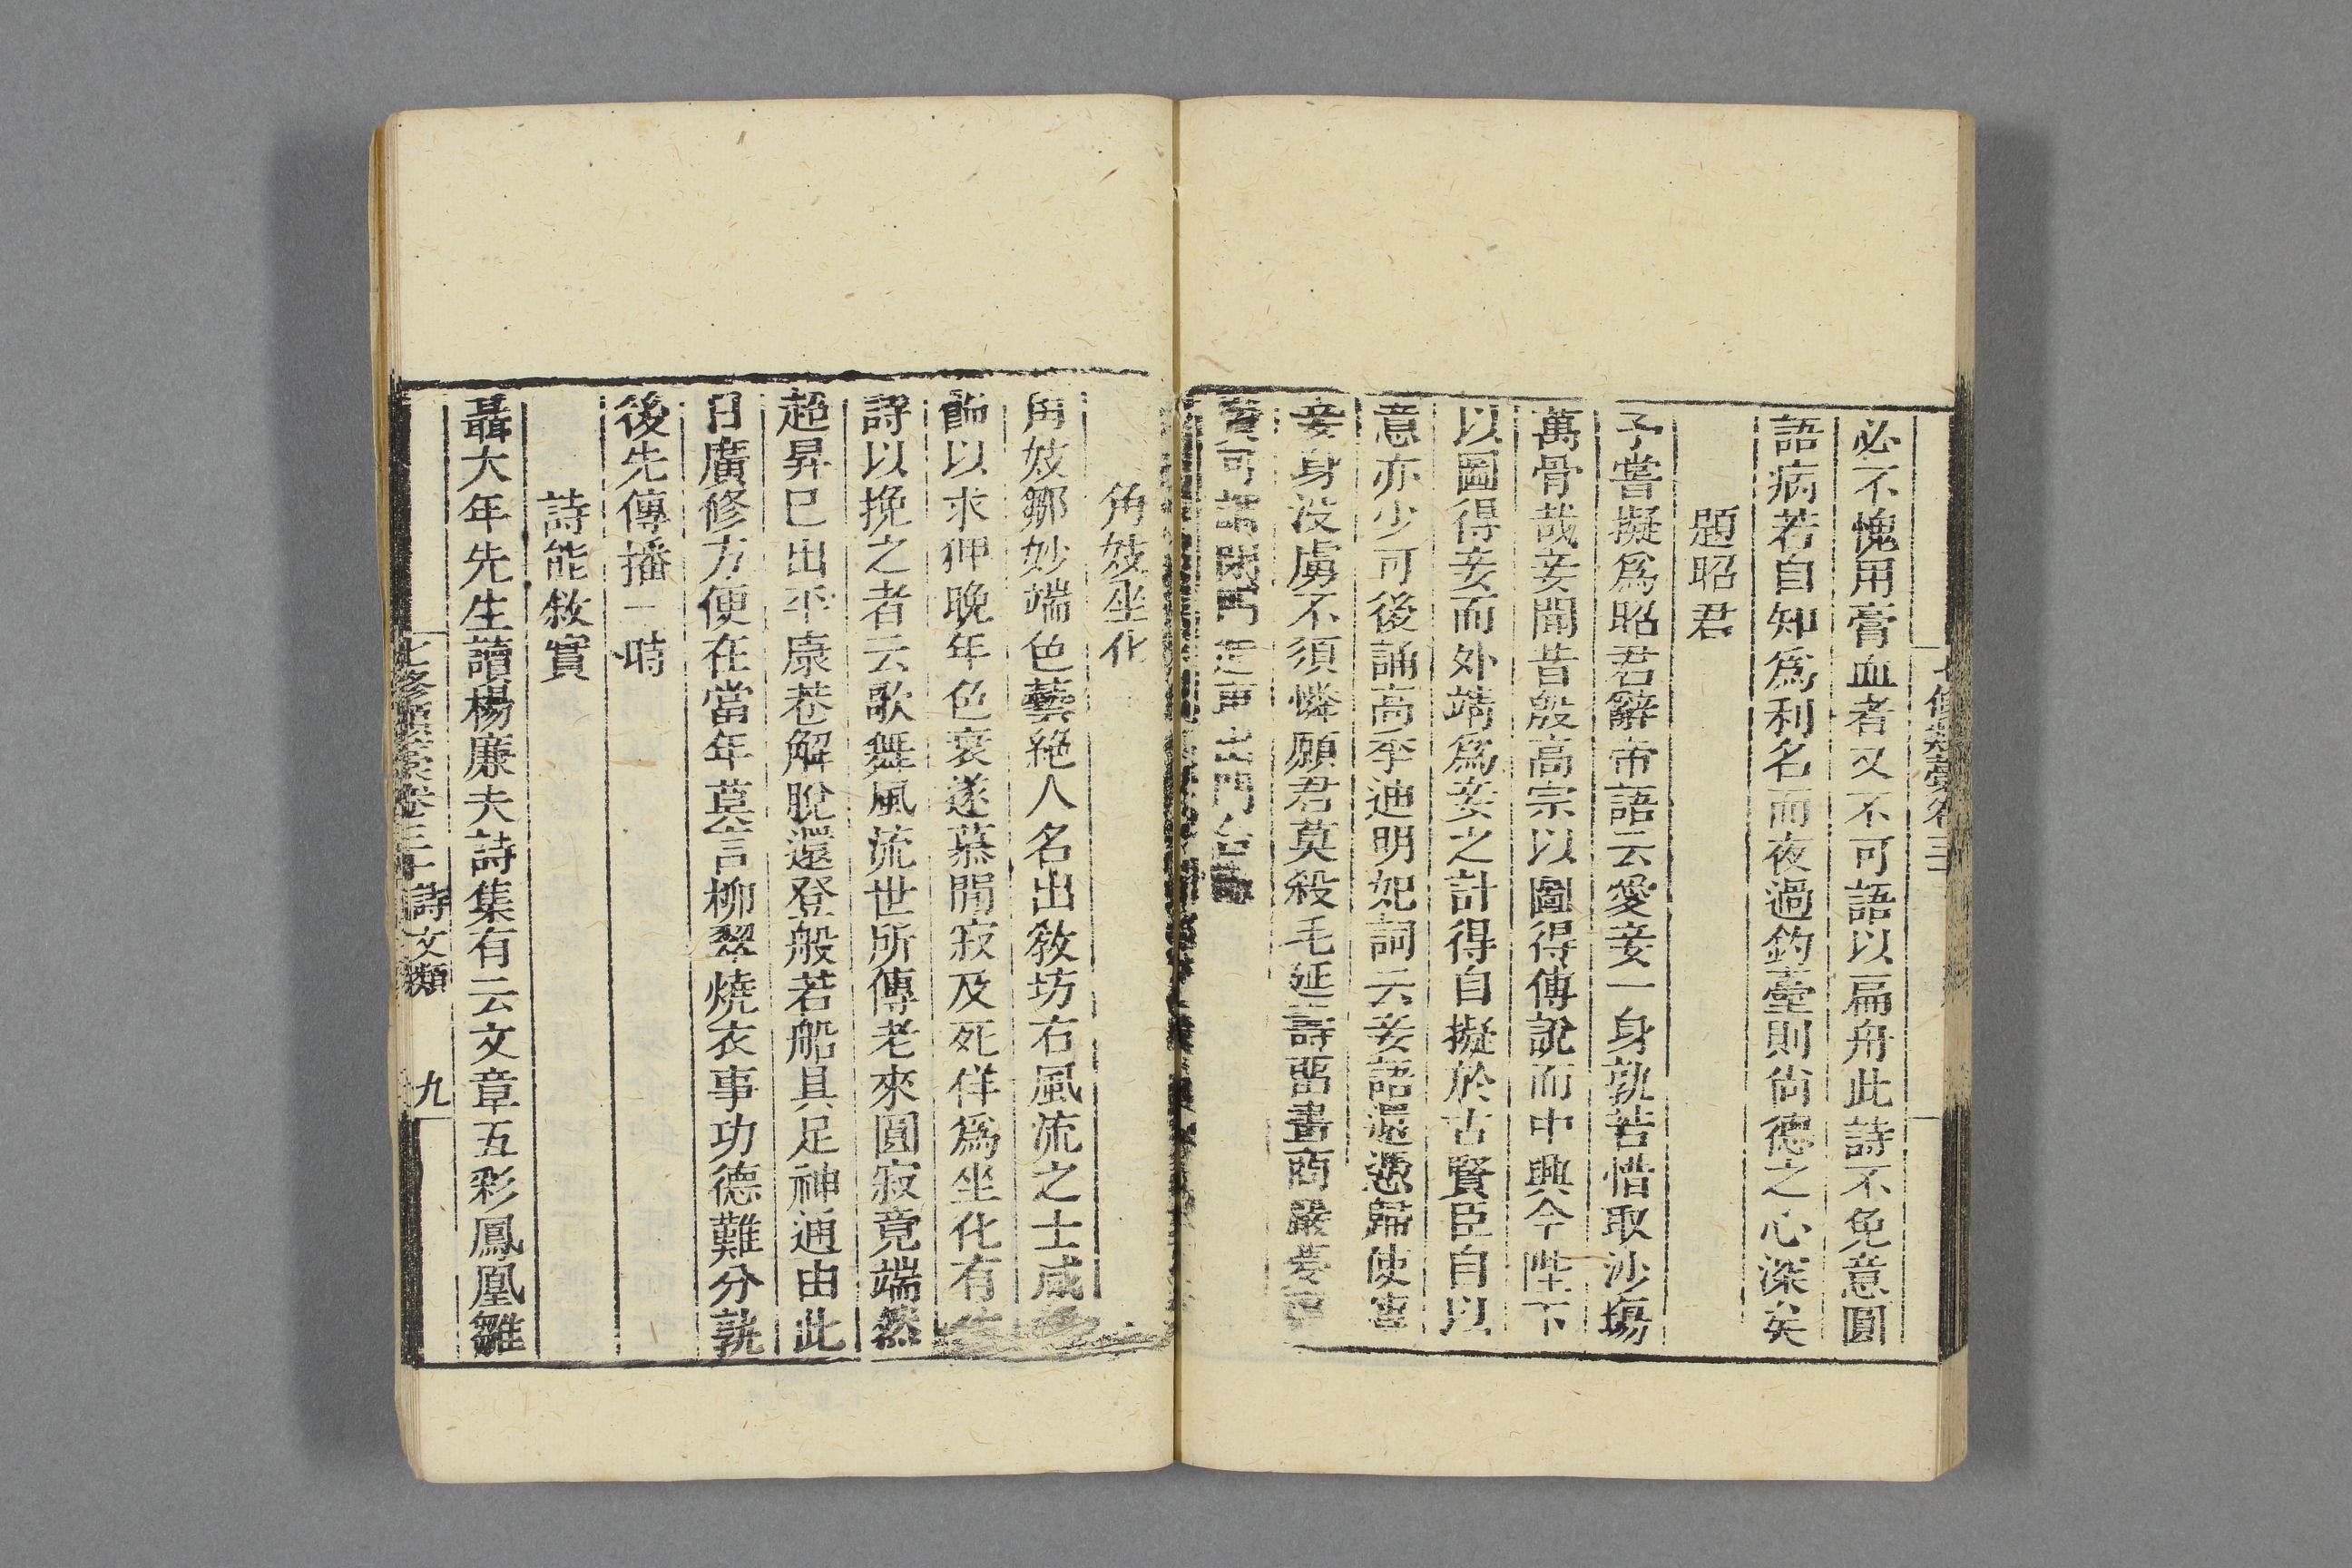 必不愧用膏血者又不可語以扁舟此詩不免意圓
語病若自知爲利名而夜過釣臺則尚德之心深矣
題昭君
予嘗擬爲昭君辭帝語云愛妾一身孰若惜取沙塲
萬骨哉妾聞昔殷高宗以圖得傅說而中興今陛下
以圖得妾而外靖爲妾之計得自擬於古賢臣自以
意亦少可後誦高季迪明妃詞云妾語還憑歸使
妾身沒虜不須憐願君莫殺毛延壽畱畫商巖夢
可謂
角妓坐化
角妓鄒妙端色藝絶人名出敎坊右風流之士咸
飾以求狎晚年色衰遂慕閒寂及死佯爲坐化有
詩以挽之者云歌舞風流世所傳老來圓寂竟端然
超昇已出平康巷解脫還登般若船具足神通由此
日廣修方便在當年莫言柳翠燒衣事功德難分孰
後先傳播一時
詩能敘實
聶大年先生讀楊廉夫詩集有云文章五彩鳳凰雛
七修類藁卷三十 詩文類 九